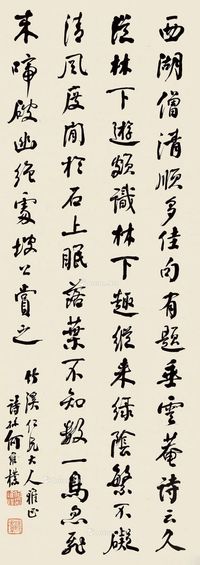 西湖僧清順多佳句有題垂雲菴詩云久
從林下遊頗識林下趣縱來綠陰繁不礙
清風度閒於石上眠落葉不知數一鳥忽飛
來啼破幽絕處坡公賞之
竹溪仁兄大人雅正
詩孫何維樸